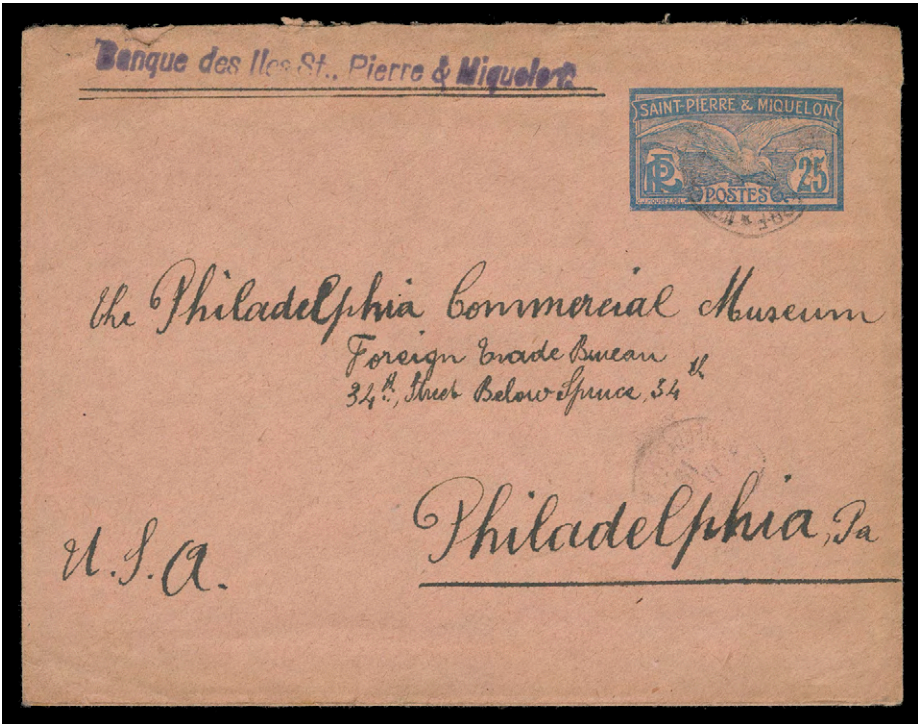 Banque des Iles St., Pierre & Miquelon
SAINT-PIERRE & MIQUELON
RF
25
POSTES
the Philadelphia Commercial Museum
Foreign Trade Bureau
34th, Street Below Spruce, 34th
Philadelphia, Pa
U.S.A.